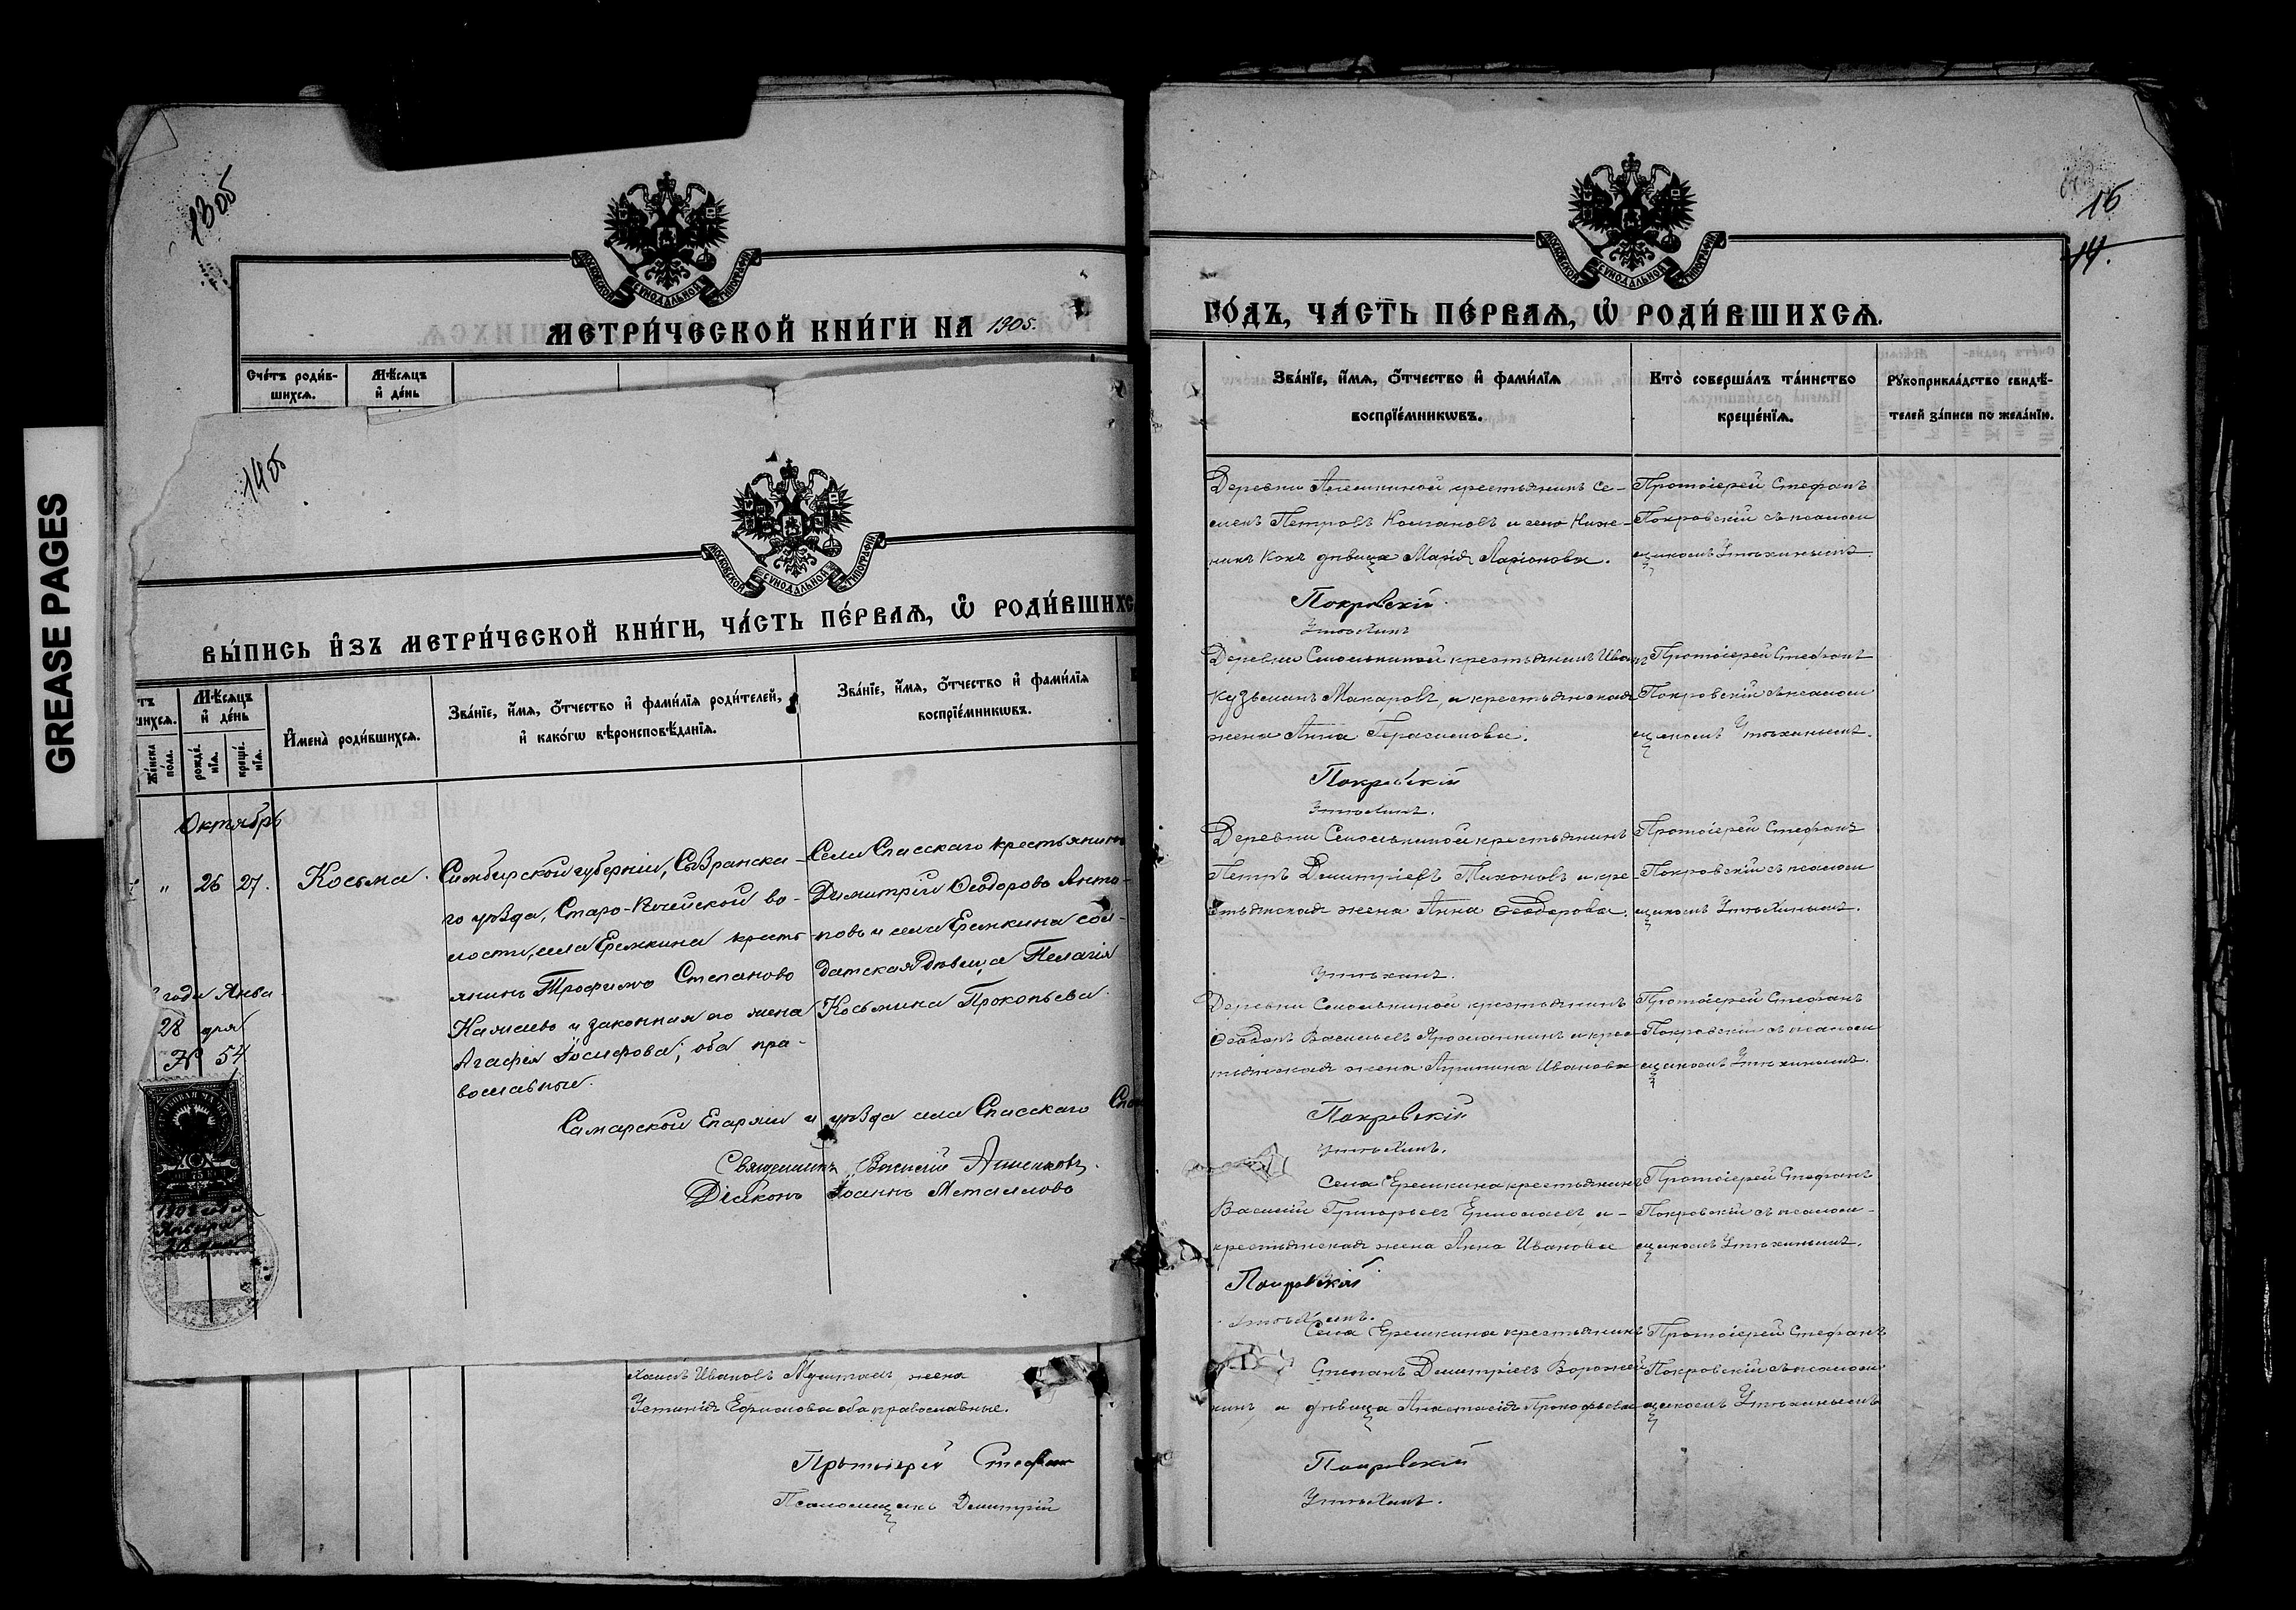 GREASE PAGES
13об
МОСКОВСКОЙ СѴНОДАЛЬНОЙ ТИПОГРАФІИ
МЕТРИ́ЧЕСКОЙ КНИ́ГИ НА 1905.
Сче́тъ роди́в-
шихсѧ.
Мѣ́сѧцъ
и҆ де́нь
14об
МОСКОВСКОЙ СѴНОДАЛЬНОЙ ТИПОГРАФІИ
ВЫ́ПИСЬ И҆ЗЪ МЕТРИ́ЧЕСКОЙ КНИ́ГИ, ЧА́СТЬ ПЕ́РВАѦ, Ѽ РОДИ́ВШИХС
тъ
шихсѧ.
Же́нска по́ла.
Мѣ́сѧцъ
и҆ де́нь
рожде́нїѧ.
креще́нїѧ.
И҆мена̀ роди́вшихсѧ.
Зва́нїе, и҆́мѧ, ѻ҆́тчество и҆ фами́лїѧ роди́телей,
и҆ како́гѡ вѣроисповѣ́данїѧ.
Зва́нїе, и҆́мѧ, ѻ҆́тчество и҆ фами́лїѧ
воспрїе́мникѡвъ.
Октябрь
" 26 27.
Косьма.
Симбирской губерніи, Сызранска-
го уѣзда, Старо-
во-
лости, села Еремкина кресть-
янинъ Трофимъ Степановъ
и законная его жена
Агафія Іосифова; оба пра-
вославные.
Села Спасскаго крестьянинъ
Димитрій Ѳеодоровъ Анто-
новъ и села Еремкина сол-
датская дѣвица Пелагія
Косьмина Прокопьева.
года Янва
28 дня
№ 54
75 КОП
1906 года
Января
28 дня
Самарской Епархіи и уѣзда села Спасскаго
Священникъ Василій
Діаконъ Іоаннъ Металловъ
Ивановъ жена
Устинія Ефимова оба православные.
Протоіерей Стефанъ
Псаломщикъ Димитрій
16
14.
МОСКОВСКОЙ СѴНОДАЛЬНОЙ ТИПОГРАФІИ
ГО́ДЪ, ЧА́СТЬ ПЕ́РВАѦ, Ѽ РОДИ́ВШИХСѦ.
Зва́нїе, и҆́мѧ, ѻ҆́тчество и҆ фами́лїѧ
воспрїе́мникѡвъ.
Кто̀ соверша́лъ та́инство
креще́нїѧ.
Рꙋкоприкла́дство свидѣ́-
телей за́писи по жела́нїю.
Деревни крестьянинъ Се-
менъ Петровъ и села Ниж-
дѣвица Марія Ларіонова.
Протоіерей Стефанъ
Покровскій съ псалом
щикомъ Утѣхинымъ.
Покровскій.
Утѣхинъ
Деревни крестьянинъ Иванъ
Кузьминъ Макаровъ, и крестьянская
жена Анна Герасимова.
Протоіерей Стефанъ
Покровскій съ псалом
щикомъ Утѣхинымъ.
Покровскій
Утѣхинъ.
Деревни крестьянинъ
Петръ Димитріевъ Тихоновъ и кре-
стьянская жена Анна Ѳеодорова.
Протоіерей Стефанъ
Покровскій съ псалом
щикомъ Утѣхинымъ.
Утѣхинъ.
Деревни крестьянинъ
Ѳеодоръ Васильевъ и крес-
тьянская жена Ивановна
Протоіерей Стефанъ
Покровскій съ псалом
щикомъ Утѣхинымъ.
Покровскій
Утѣхинъ.
Села Еремкина крестьянинъ
Василій Григорьевъ Ермолаевъ, и-
крестьянская жена Анна Иванова
Протоіерей Стефанъ
Покровскій съ псалом-
щикомъ Утѣхинымъ.
Покровскій
Утѣхинъ.
Села Еремкина крестьянинъ
Степанъ Димитріевъ Ворожей
кинъ, и дѣвица Анастасія Прокофьева
Протоіерей Стефанъ
Покровскій съ псалом
щикомъ Утѣхинымъ
Покровскій
Утѣхинъ.